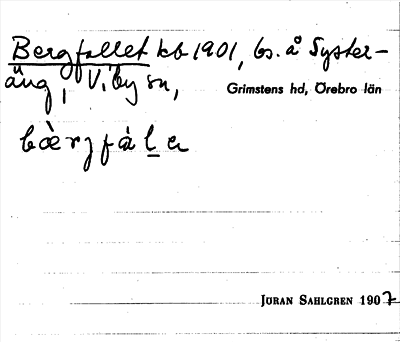 Bergfallet kb 1901, bs. å Syster-
äng, Viby sn,
Grimstens hd, Örebro län
bàrgfàlen
JÖRAN SAHLGREN 1907